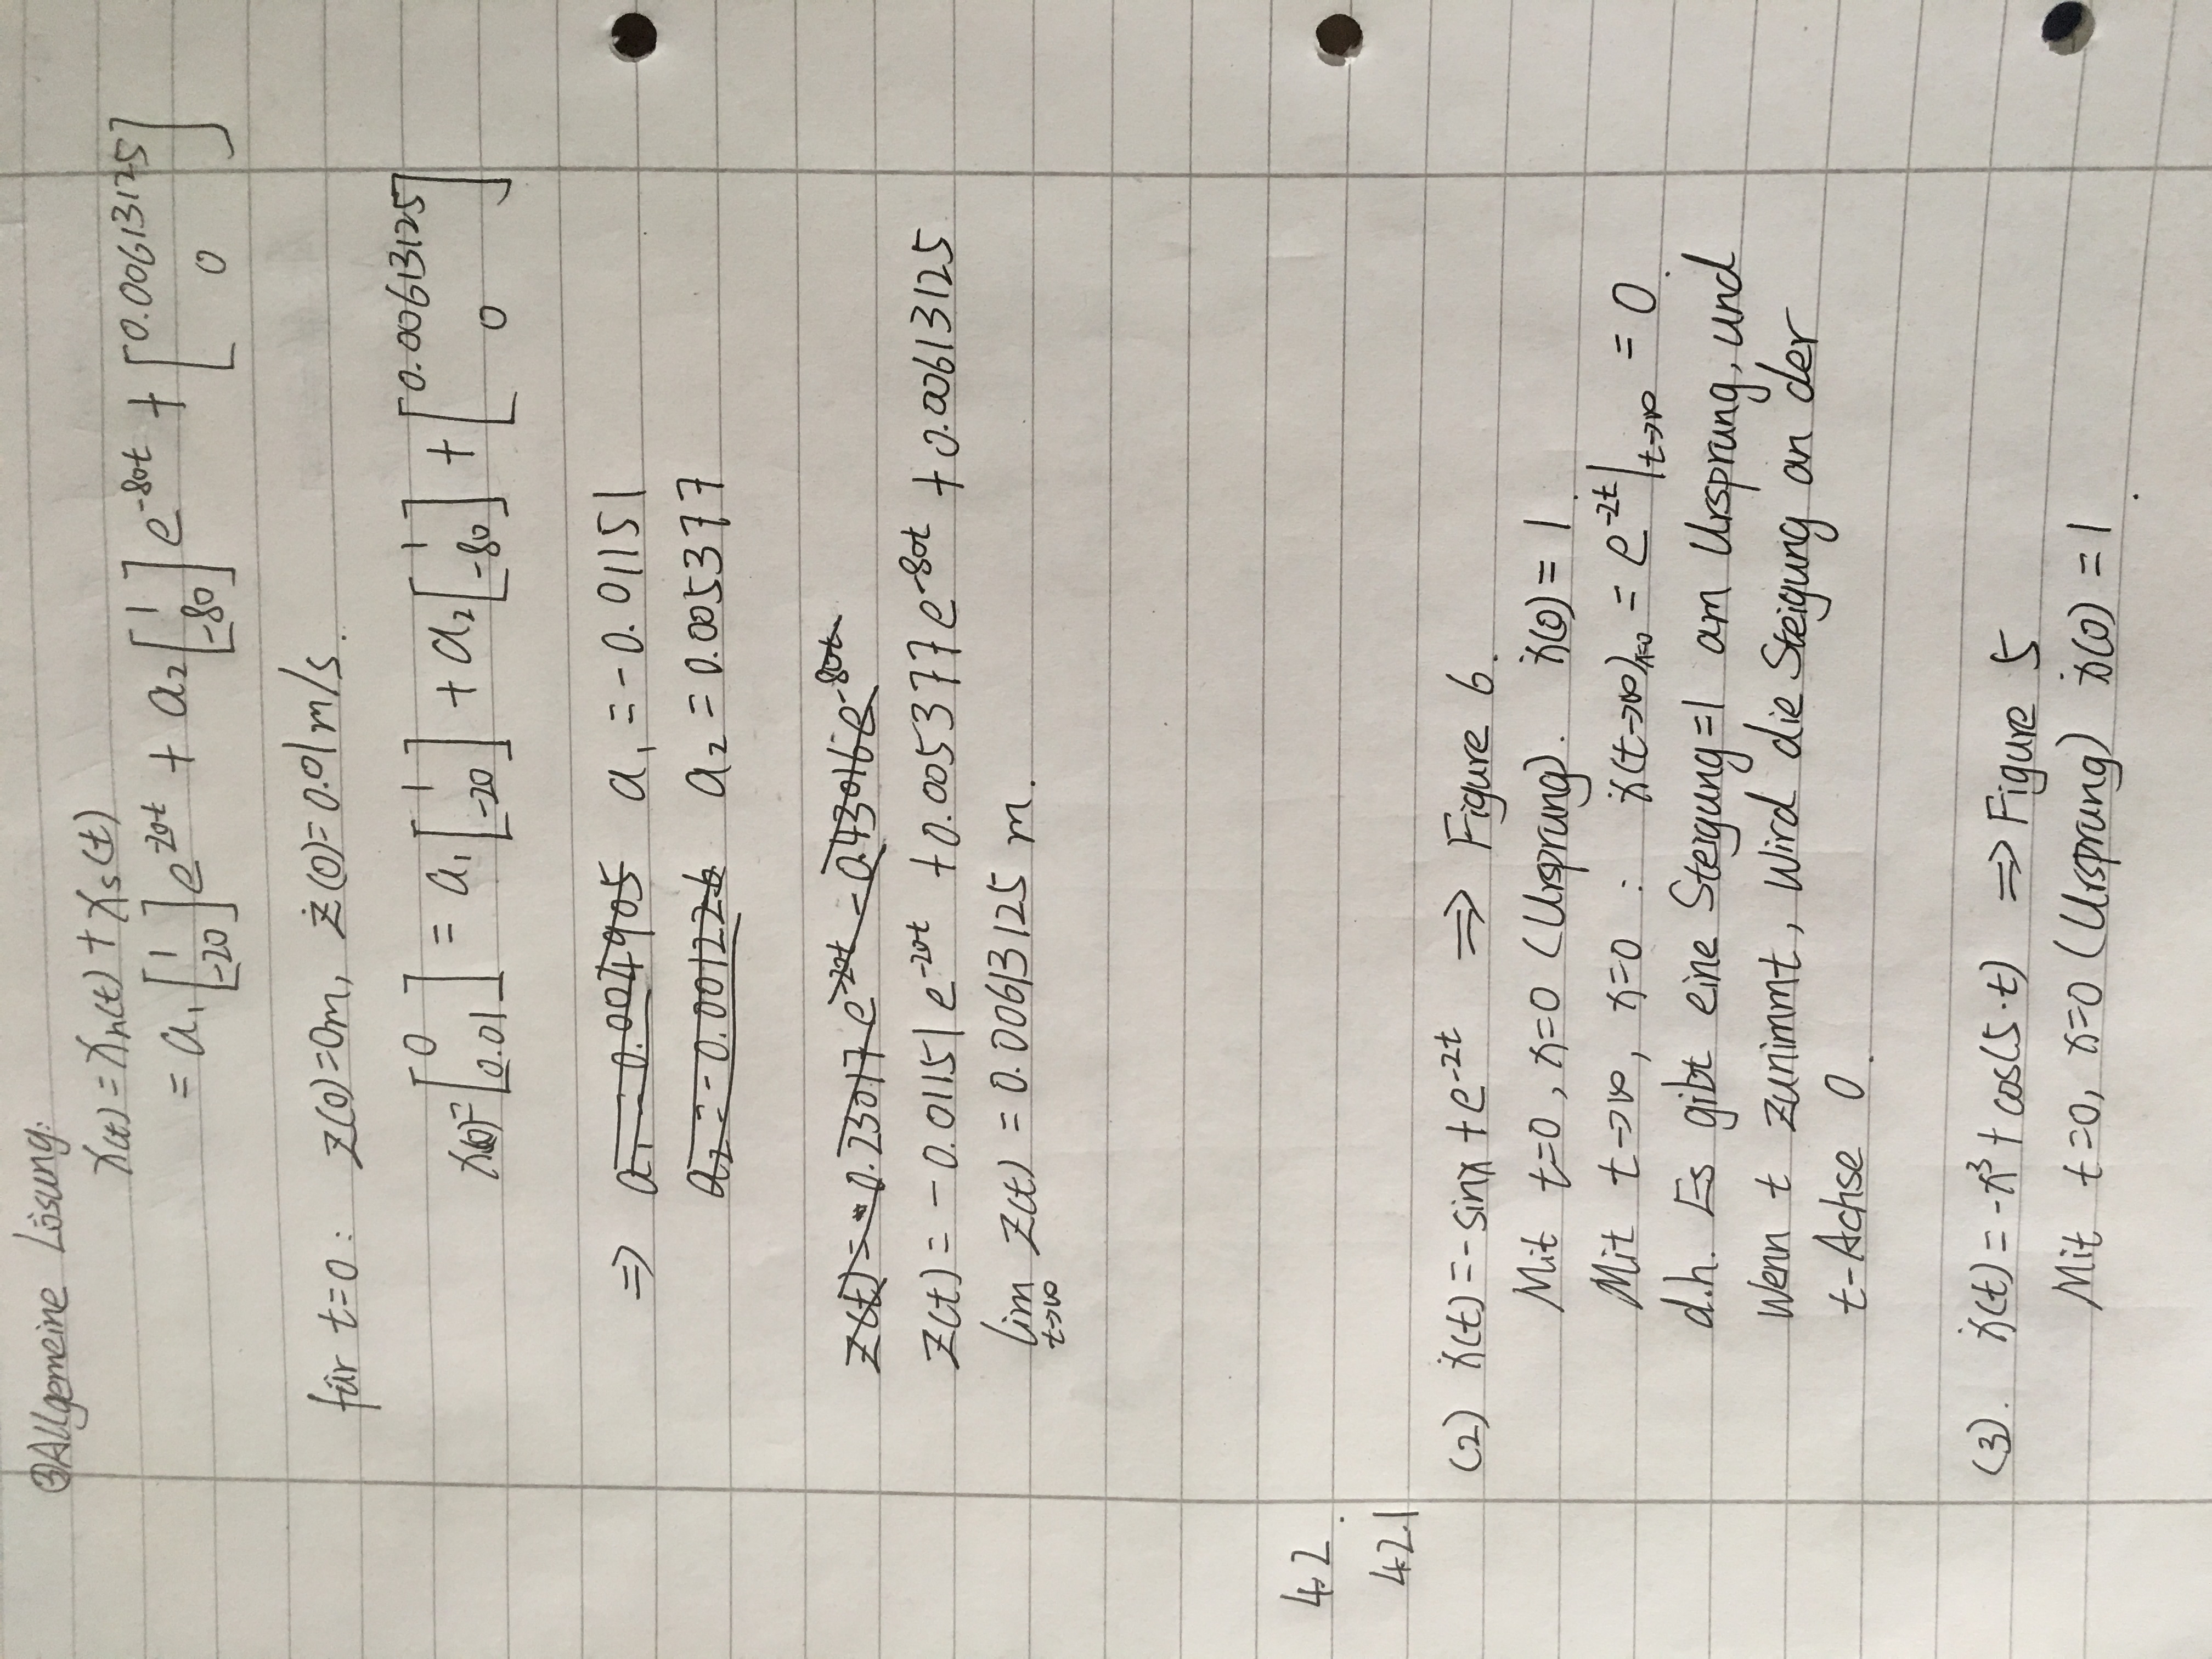 ③Allgemeine Lösung:
x(t) = xh(t) + xs(t)
= a₁ [1 -20] e^-20t + a₂ [1 -80] e^-80t + [0.00613125 0]
für t=0: z(0)=0m, ż(0)=0.01m/s.
x(0)= [0 0.01] = a₁ [1 -20] + a₂ [1 -80] + [0.00613125 0]
⇒ a₁ = 0.004905 a₁ = -0.01151
a₂ = -0.001226 a₂ = 0.005377
z(t) = 0.23017 e^-20t - 0.43016 e^-80t
z(t) = -0.01151 e^-20t + 0.005377 e^-80t + 0.00613125
lim t→∞ z(t) = 0.00613125 m.
4.2.
4.2.1
(2) ẋ(t) = -sinx + e^-2t ⇒ Figure 6.
Mit t=0, x=0 (Ursprung). ẋ(0) = 1.
Mit t→∞, x=0 : ẋ(t→∞)x=0 = e^-2t|t→∞ = 0.
d.h. Es gibt eine Steigung=1 am Ursprung, und
Wenn t zunimmt, wird die Steigung an der
t-Achse 0.
(3). ẋ(t) = -x³ + cos(5·t) ⇒ Figure 5
Mit t=0, x=0 (Ursprung) ẋ(0) = 1.